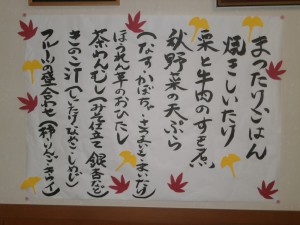 まつたけごはん
焼きしいたけ
栗と牛肉のすき煮
秋野菜の天ぷら
(なす・かぼちゃ・さつまいも・まいたけ)
ほうれん草のおひたし
茶わんむし(みそ仕立て 銀杏など)
きのこ汁(しいたけ・なめこ・しめじ)
フルーツの盛合わせ(柿・りんご・キウイ)